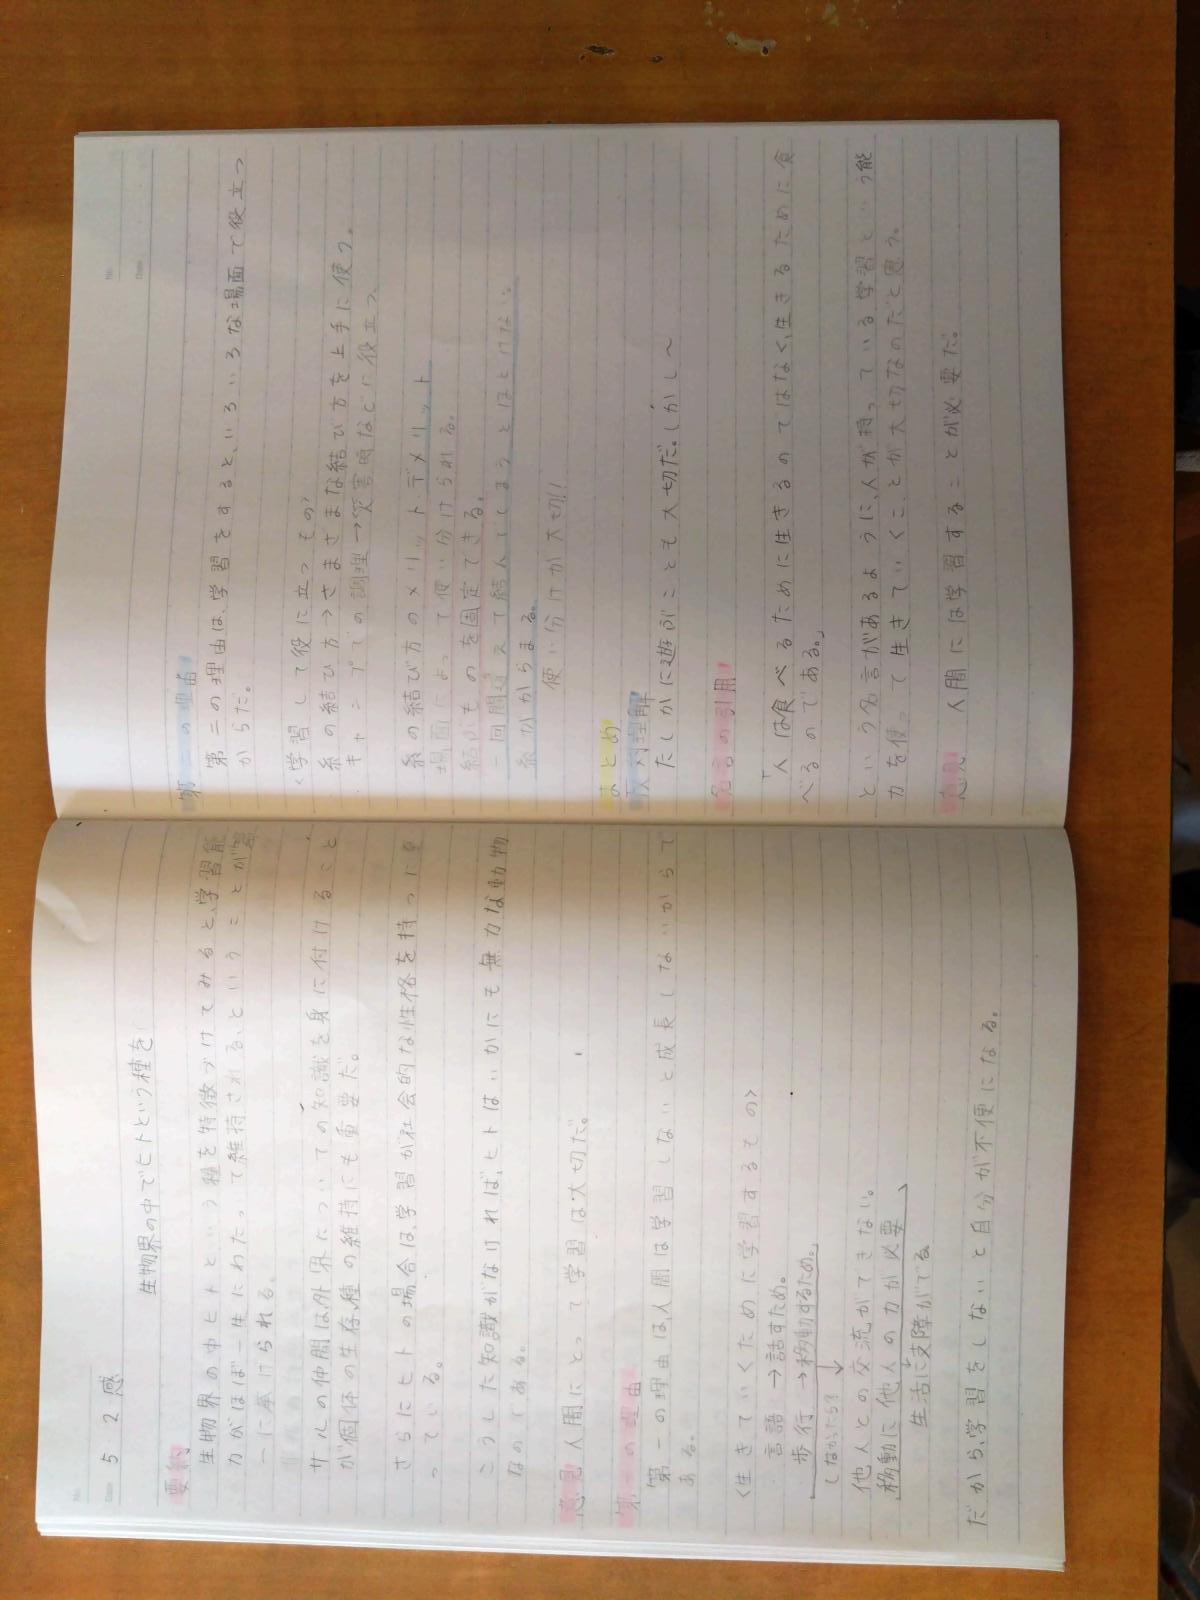 No.
Date 5 2 感
生物界の中でヒトという種を
要約
生物界の中ヒトという種を特徴づけてみると、学習能
力がほぼ一生にわたって維持される、ということが第
一に挙げられる。
サルの仲間は、外界についての知識を身に付けること
が個体の生存、種の維持にも重要だ。
さらにヒトの場合は、学習が社会的な性格を持つに至
っている。
こうした知識がなければ、ヒトはいかにも無力な動物
なのである。
意見 人間にとって学習は大切だ。
第一の理由
第一の理由は、人間は学習しないと成長しないからで
ある。
〈生きていくために学習するもの〉
・言語→話すため。
・歩行→移動するため。
しなかったら?
他人との交流ができない。
移動に他人の力が必要
生活に支障がでる
だから、学習をしないと自分が不便になる。
No.
Date
第二の理由
第二の理由は、学習をすると、いろいろな場面で役立つ
からだ。
〈学習して役に立つもの〉
・糸の結び方→さまざまな結び方を上手に使う。
・キャンプでの調理→災害時などに役立つ
糸の結び方のメリット・デメリット
場面によって使い分けられる。
結ぶものを固定できる。
一回間違えて結んでしまうとほどけない。
糸がからまる。
使い分けが大切!!
まとめ
反対理解
たしかに遊ぶことも大切だ。しかし〜
名言の引用
「人は食べるために生きるのではなく、生きるために食
べるのである。」
という名言があるように、人が持っている学習という能
力を使って生きていくことが大切なのだと思う。
意見 人間には学習することが必要だ。